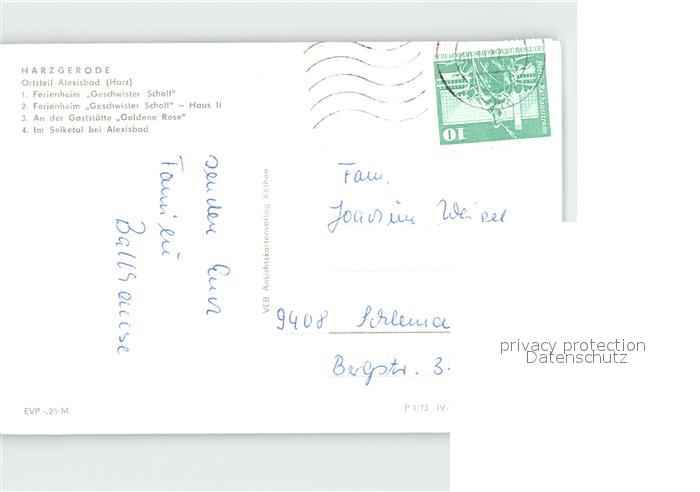 HARZGERODE
Ortsteil Alexisbad (Harz)
1. Ferienheim „Geschwister Scholl"
2. Ferienheim „Geschwister Scholl" – Haus II
3. An der Gaststätte „Goldene Rose"
4. Im Selketal bei Alexisbad
senden Euch
Familie
VEB Ansichtskartenverlag Köthen
10
Fam.
Joachim
9408 Schlema
Bergstr. 3
EVP -,25 M
P 1/73 IV-
privacy protection
Datenschutz